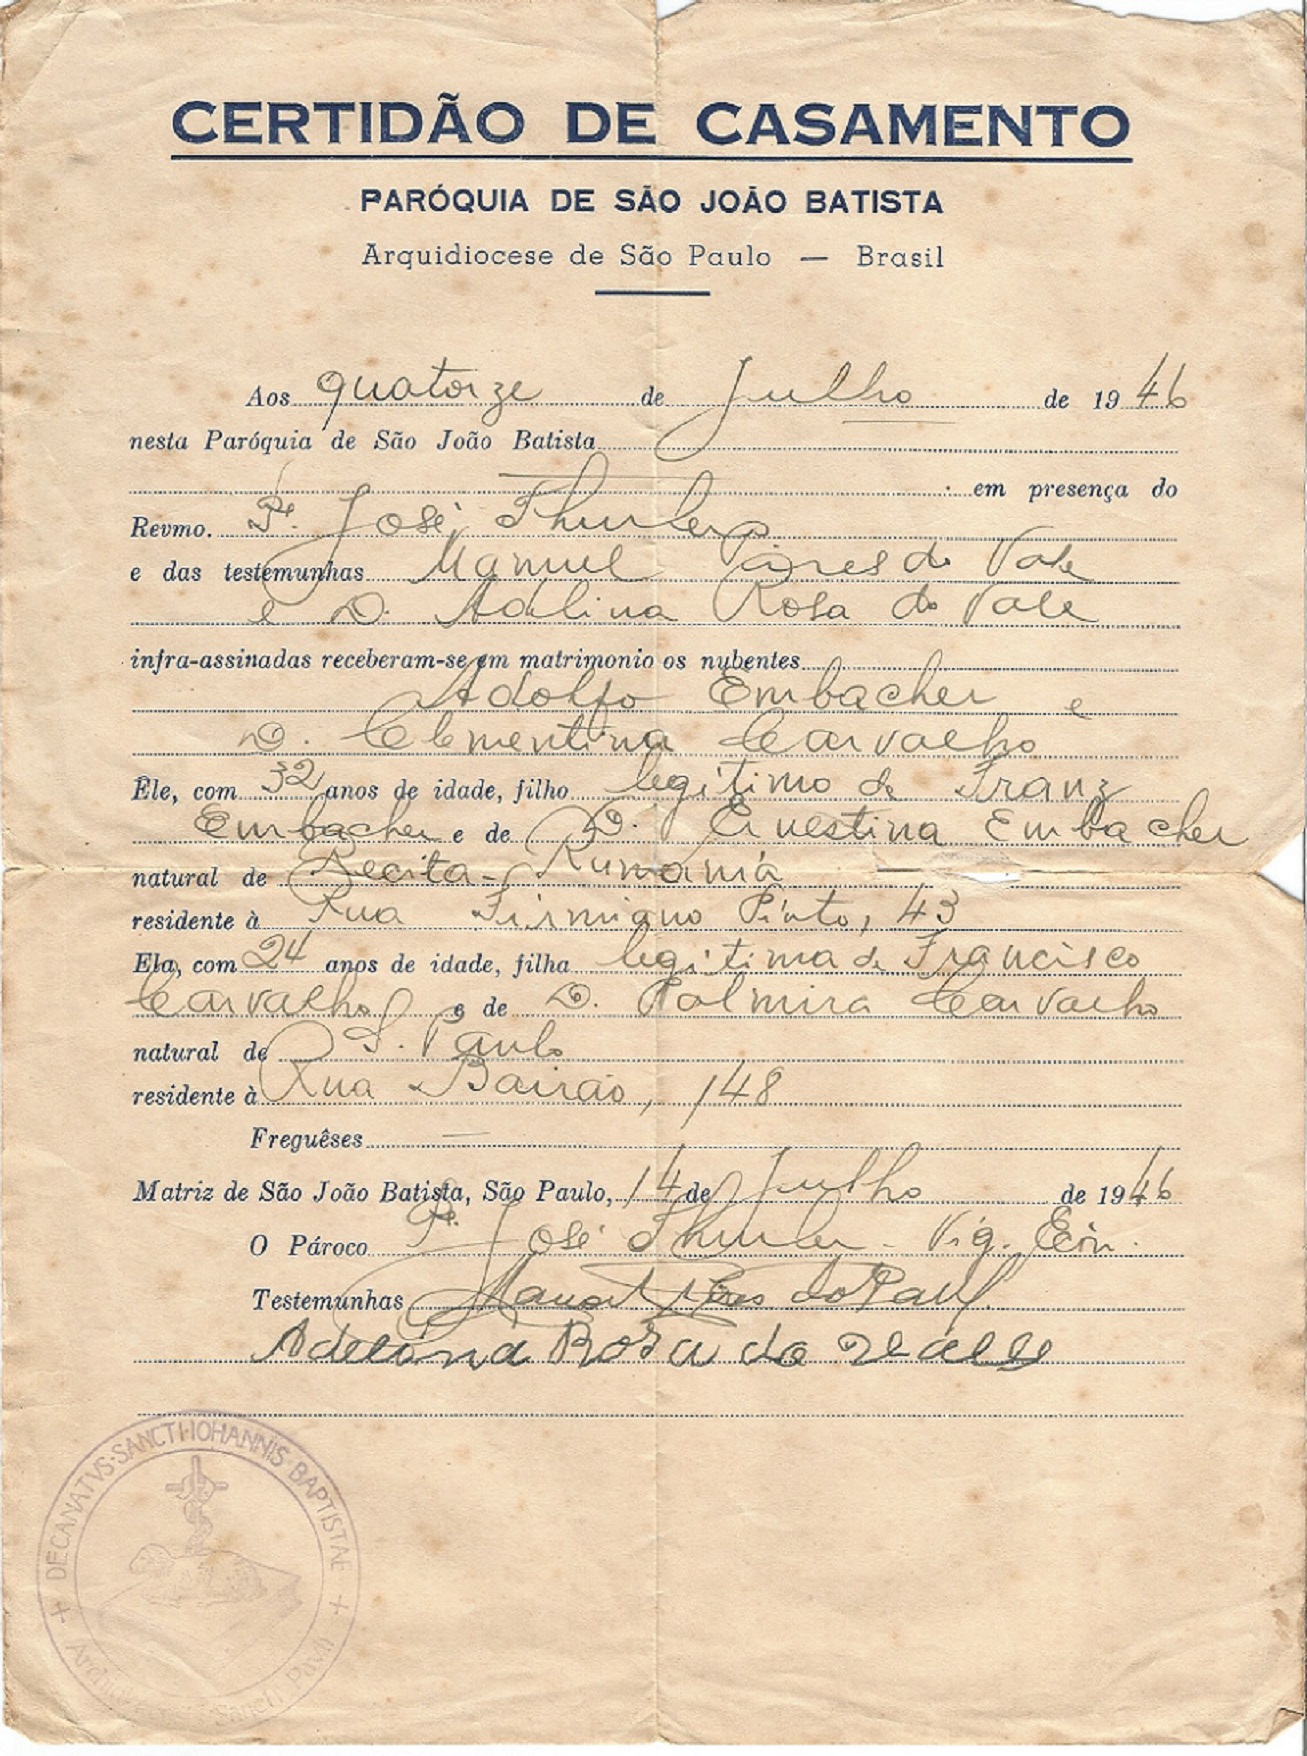 CERTIDÃO DE CASAMENTO
PARÓQUIA DE SÃO JOÃO BATISTA
Arquidiocese de São Paulo — Brasil
Aos quatorze de Julho de 1946
nesta Paróquia de São João Batista
em presença do
Revmo. Pe. José Thurler
e das testemunhas Manuel Pires do Vale
e D. Adelina Rosa do Vale
infra-assinadas receberam-se em matrimonio os nubentes
Adolfo Embacher e
D. Clementina Carvalho
Êle, com 32 anos de idade, filho legítimo de Franz
Embacher e de D. Ernestina Embacher
natural de Recita - Rumania
residente à Rua Firmiano Pinto, 43
Ela, com 24 anos de idade, filha legítima de Francisco
Carvalho e de D. Palmira Carvalho
natural de S. Paulo
residente à Rua Bairão, 148
Freguêses —
Matriz de São João Batista, São Paulo, 14 de Julho de 1946
O Pároco Pe. José Thurler - Vig. Ecôn.
Testemunhas
Rosa do
DECANATVS·SANCTI·IOHANNIS BAPTISTAE
Sancti Pavli